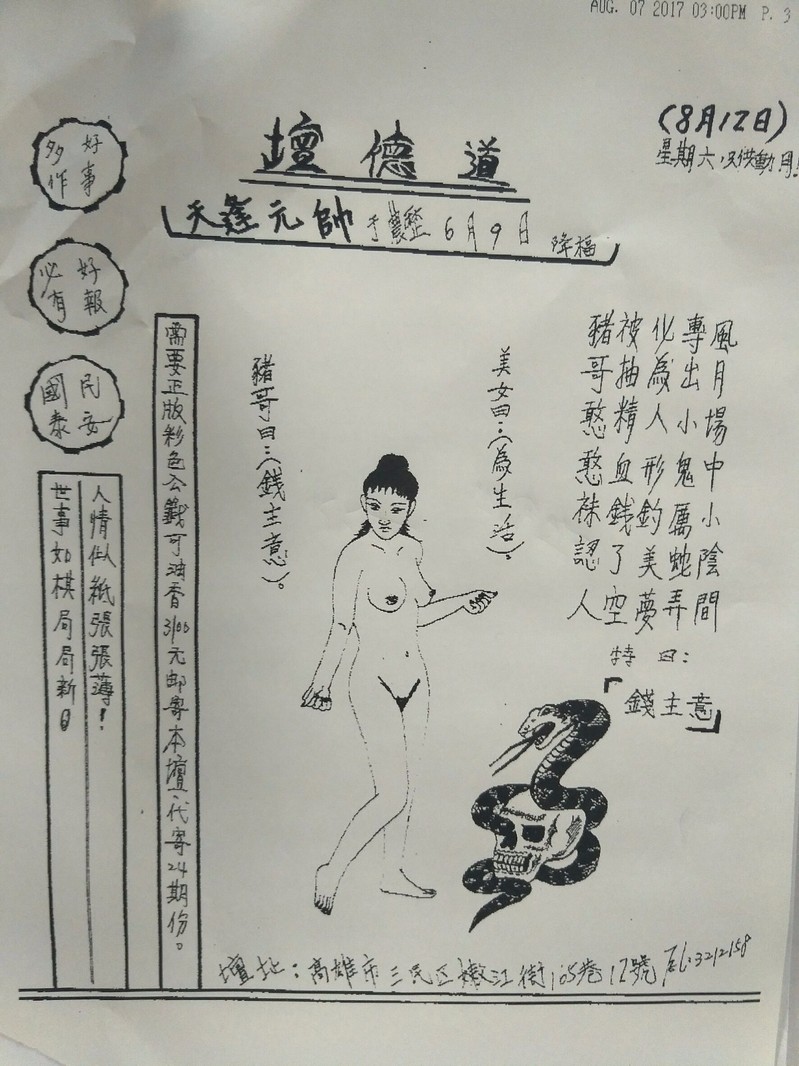 AUG. 07 2017 03:00PM P. 3
(8月12日)
壇德道
天蓬元帥 6月9日 降福
好事
多作
好報
必有
民安
國泰
風月場中小陰間
專出小鬼厲蛇弄
化為人形釣美夢
被抽精血錢了空
豬哥憨憨袜認人
特曰:
「錢主意」
美女曰:(為生活)。
豬哥曰:(錢主意)。
需要正版彩色公籤可油香3100元郵寄本壇、代寄24期份。
人情似紙張張薄!
世事如棋局局新
壇址:高雄市三民区嫩江街105巷12號 Tel:3212158